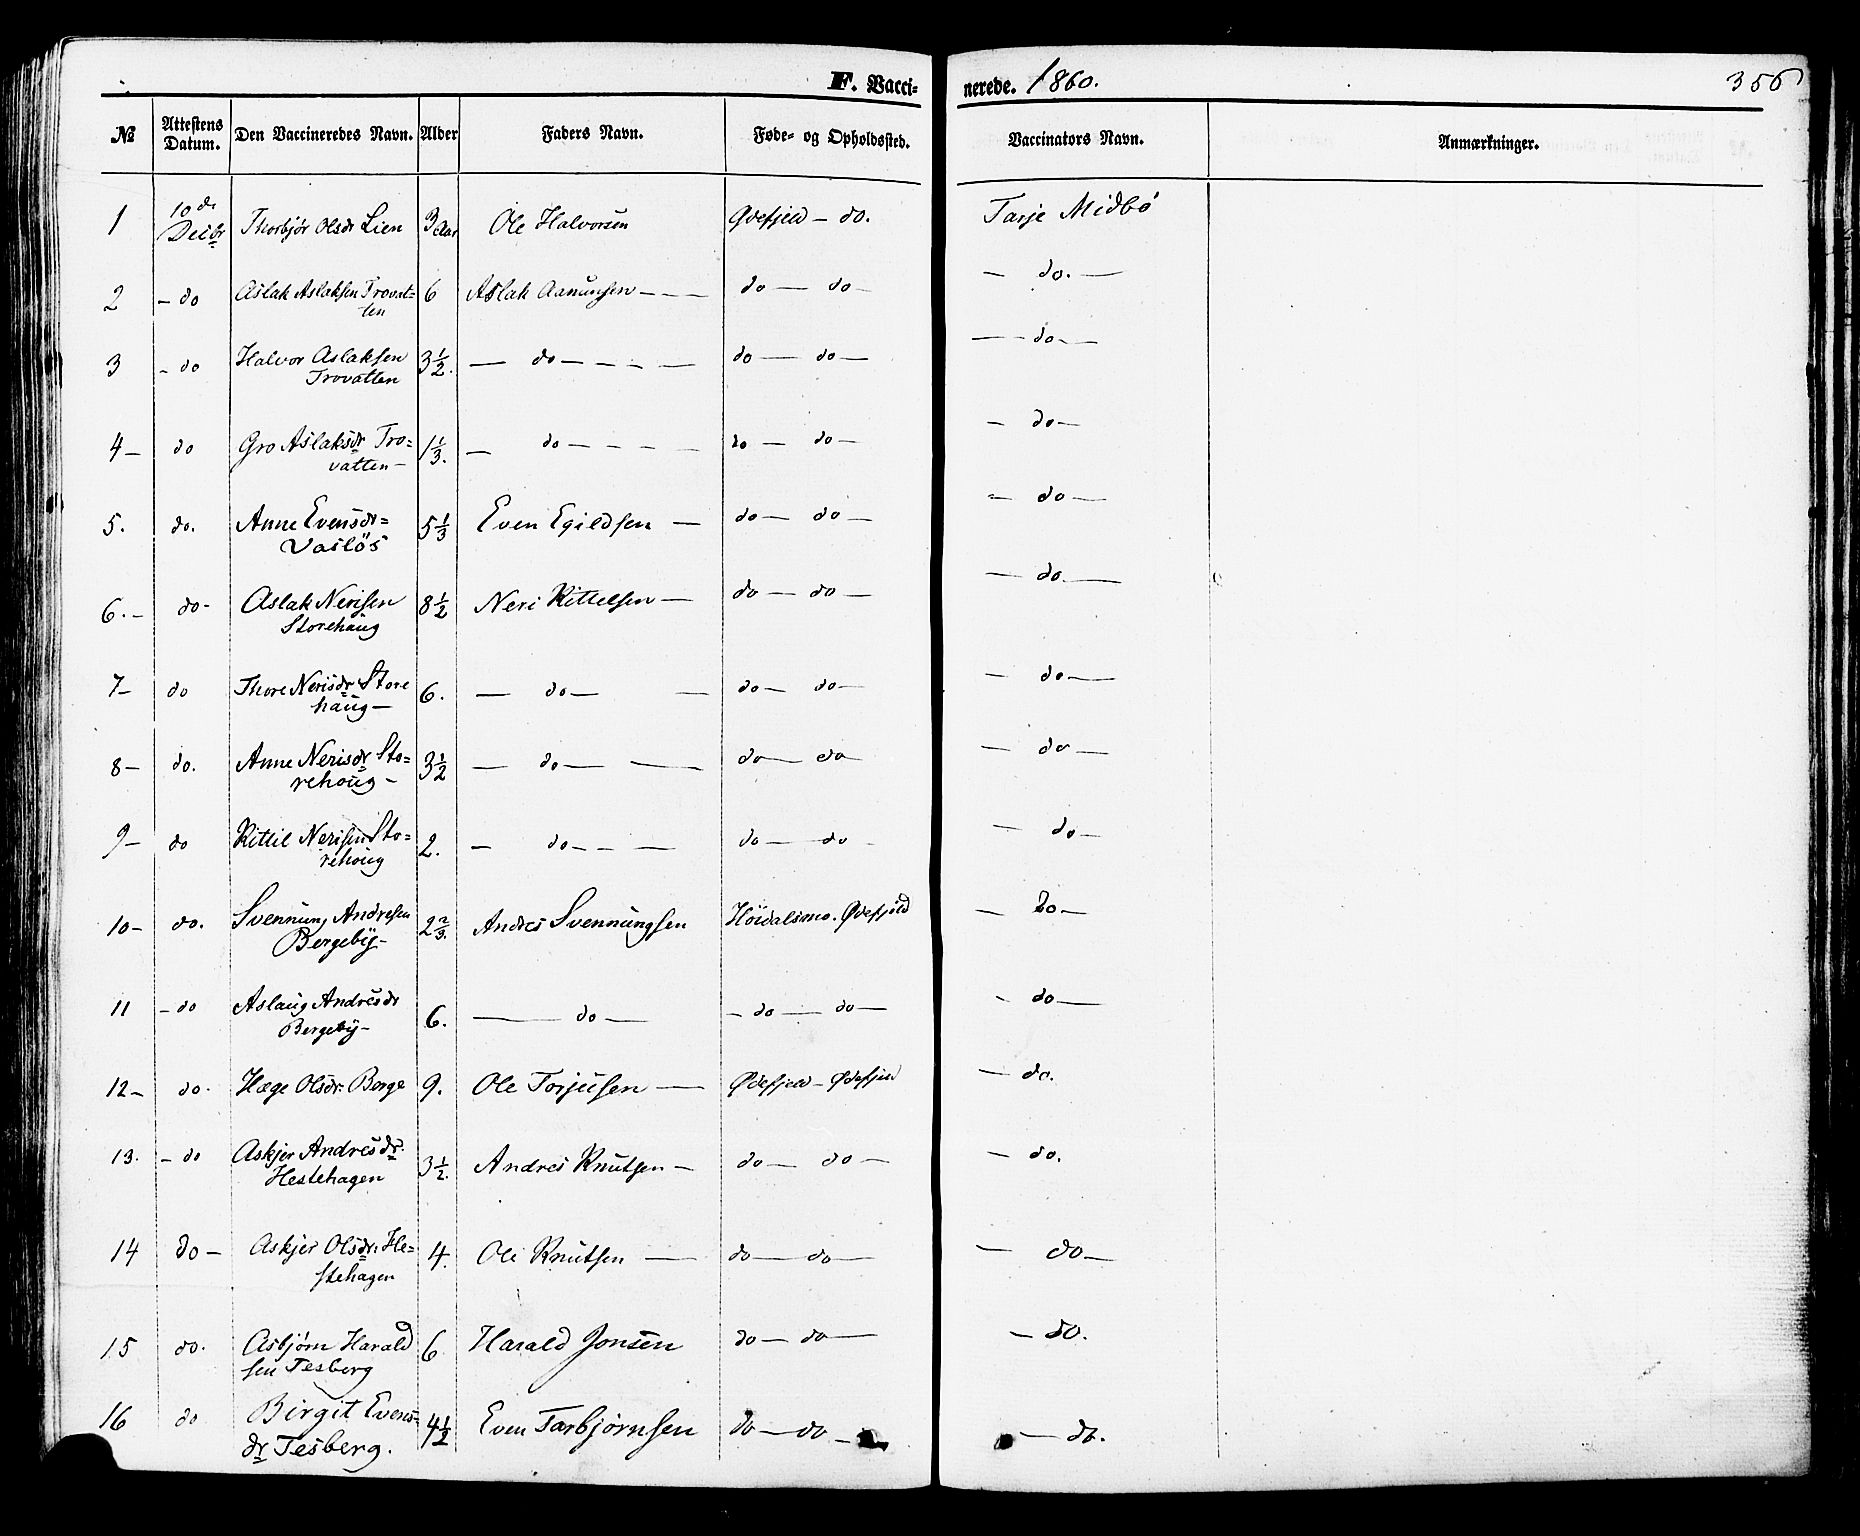 F. Vacci- nerede. 1860. 356
№ Attestens Datum. Den Vaccineredes Navn. Alder Faders Navn. Føde- og Opholdssted. Vaccinators Navn. Anmærkninger.
1 10de Decbr Thorbjör Olsdr Lien 3 Aar Ole Halvorsen Ødefjeld – do. Tarje Midbö
2 – do Aslak Aslaksen Trovat= 6 Aslak Aanunsen – – do – do – – do. –
ten
3 – do Halvor Aslaksen 3 1/2. – do – – – – do – do – – – do – –
Trovatten
4 – do Gro Aslaksdr Tro= 1 1/3. – do – – – – do – do – – do –
vatten –
5. do. Anne Evensdr= 5 1/3 Even Egildsen – do – do – – do –
Vaslös
6. – do – Aslak Nerisen 8 1/2 Neri Kittelsen – do – do – – do. –
Storehaug
7 – do Thore Nerisdr Store 6. – do – – do – do – – do –
haug –
8 – do. Anne Nerisdr Sto= 3 1/2 – do – – do – do – – do –
rehoug –
9 – do Kittil Nerisen Sto= 2. – do – – – do – do – – do –
rehoug
10 – do. Svennung Andresen 2 2/3. Andres Svennungsen Höidalsmo. Ødefjeld – Do –
Bergebÿ –
11 – do Aslaug Andresdr 6. – do – – do – do – – do –
Bergebÿ –
12 – do. Hæge Olsdr. Berge 9. Ole Torjusen – Ødefjeld – Ødefjeld – do.
13. – do Askjer Andresdr. 3 1/2. Andres Knutsen – do – do – – do.
Hestehagen
14 do – Askjer Olsdr. He= 4. Ole Knutsen – do – do – – do –
stehagen
15 do. Asbjørn Harald 6 Harald Jonsen do – do – – do.
sen Tesberg
16 do Birgit Evens= 4 1/2 Even Tarbjørnsen do – do – – do.
dr Tesberg.